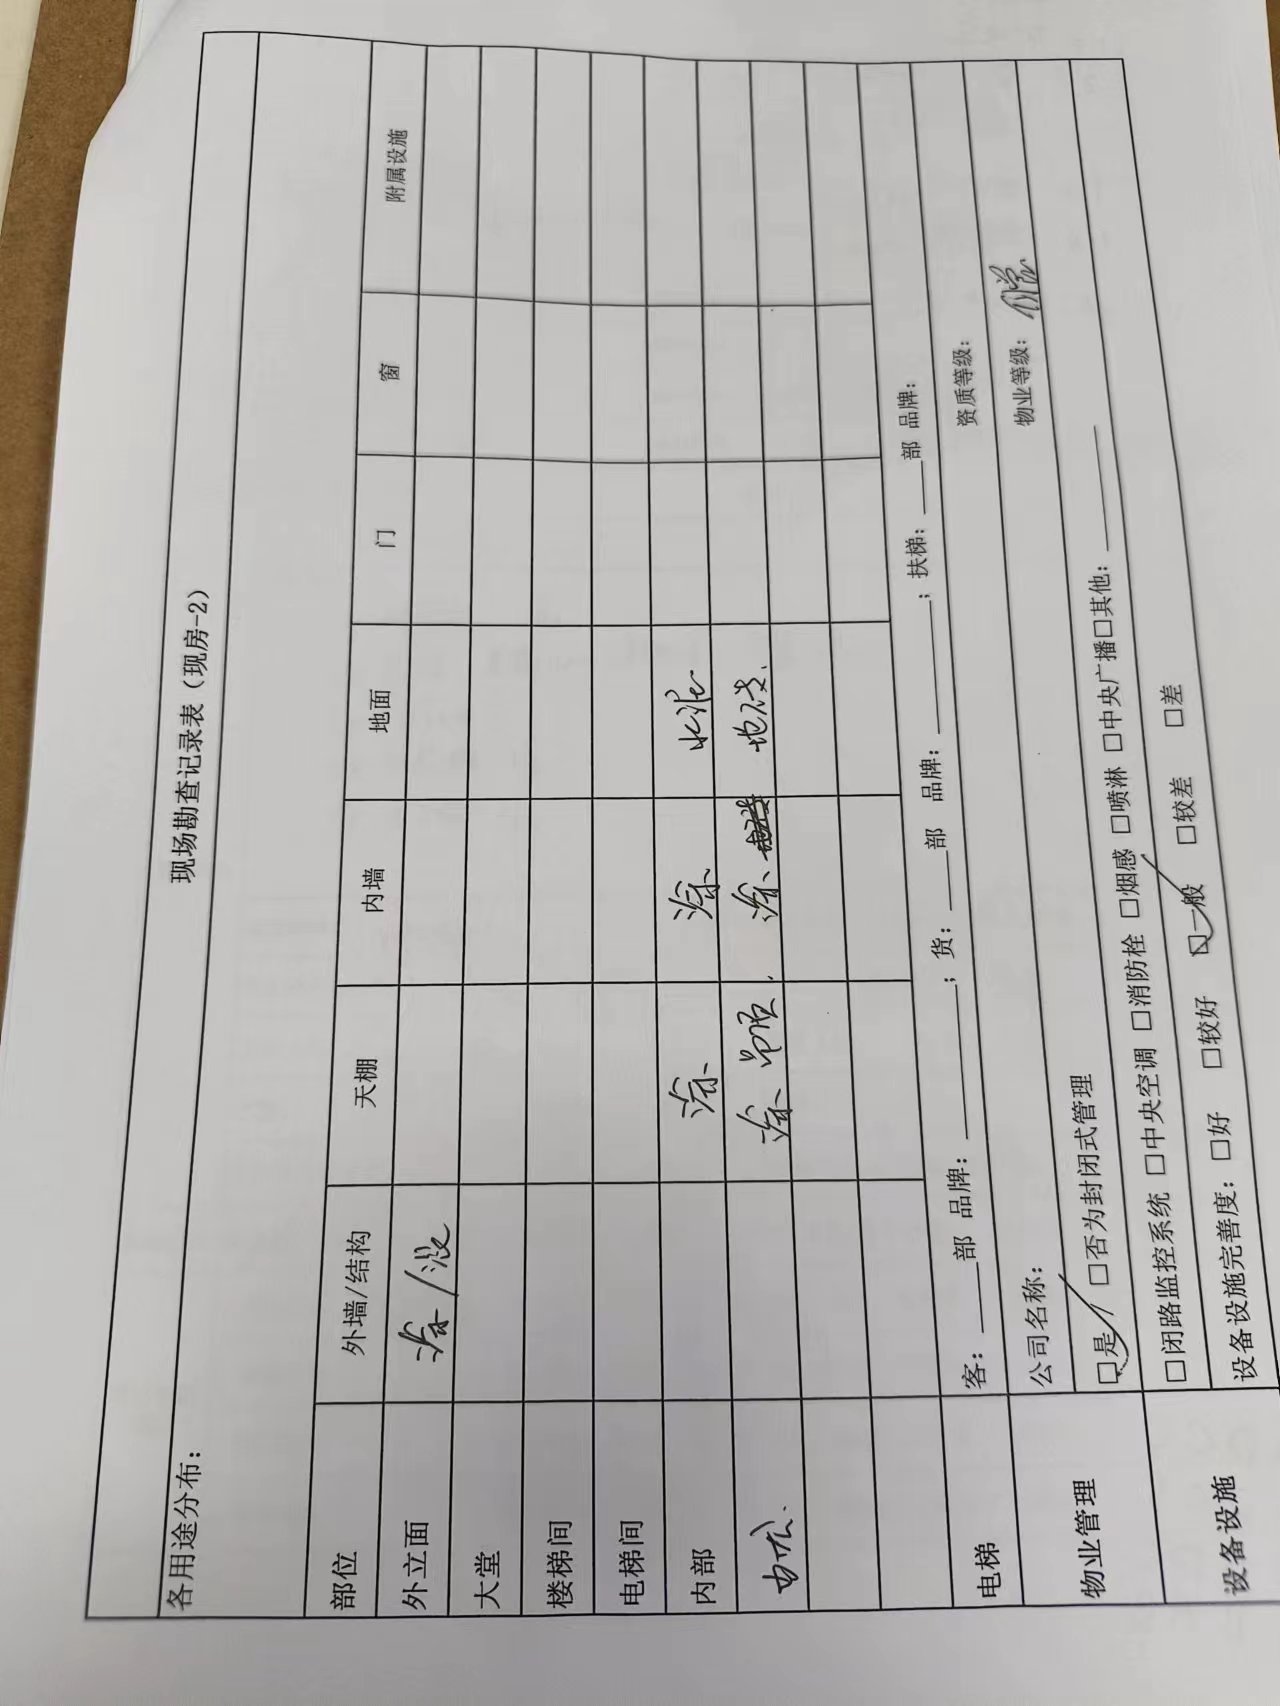 现场勘查记录表（现房-2）
各用途分布：
部位 外墙/结构 天棚 内墙 地面 门 窗 附属设施
外立面 涂/
大堂
楼梯间
电梯间
内部 涂 涂 水泥
涂 吊顶 涂
电梯 客：____部 品牌：________；货：____部 品牌：________；扶梯：____部 品牌：
公司名称： 资质等级：
物业管理 ☑是/□否为封闭式管理 物业等级：
□闭路监控系统 □中央空调 □消防栓 □烟感 □喷淋 □中央广播□其他：________
设备设施 设备设施完善度：□好 □较好 ☑一般 □较差 □差